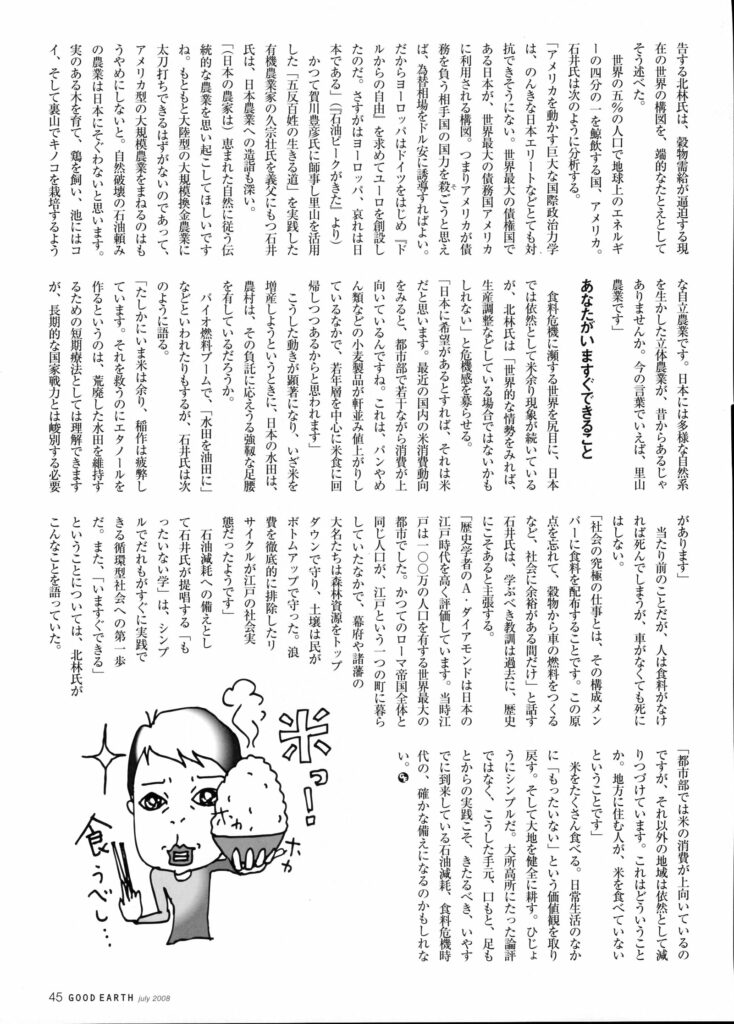 告する北林氏は、穀物需給が逼迫する現
在の世界の構図を、端的なたとえとして
そう述べた。
世界の五％の人口で地球上のエネルギ
ーの四分の一を鯨飲する国、アメリカ。
石井氏は次のように分析する。
「アメリカを動かす巨大な国際政治力学
は、のんきな日本エリートなどとても対
抗できそうにない。世界最大の債権国で
ある日本が、世界最大の債務国アメリカ
に利用される構図。つまりアメリカが債
務を負う相手国の国力を殺ごうと思え
ば、為替相場をドル安に誘導すればよい。
だからヨーロッパはドイツをはじめ『ド
ルからの自由』を求めてユーロを創設し
たのだ。さすがはヨーロッパ、哀れは日
本である」（『石油ピークがきた』より）
かつて賀川豊彦氏に師事し里山を活用
した「五反百姓の生きる道」を実践した
有機農業家の久宗壮氏を義父にもつ石井
氏は、日本農業への造詣も深い。
「（日本の農家は）恵まれた自然に従う伝
統的な農業を思い起こしてほしいです
ね。もともと大陸型の大規模換金農業に
太刀打ちできるはずがないのであって、
アメリカ型の大規模農業をまねるのはも
うやめにしないと。自然破壊の石油頼み
の農業は日本にそぐわないと思います。
実のある木を育て、鶏を飼い、池にはコ
イ、そして裏山でキノコを栽培するよう
な自立農業です。日本には多様な自然系
を生かした立体農業が、昔からあるじゃ
ありませんか。今の言葉でいえば、里山
農業です」
あなたがいますぐできること
食料危機に瀕する世界を尻目に、日本
では依然として米余り現象が続いている
が、北林氏は「世界的な情勢をみれば、
生産調整などしている場合ではないかも
しれない」と危機感を募らせる。
「日本に希望があるとすれば、それは米
だと思います。最近の国内の米消費動向
をみると、都市部で若干ながら消費が上
向いているんですね。これは、パンやめ
ん類などの小麦製品が軒並み値上がりし
ているなかで、若年層を中心に米食に回
帰しつつあるからと思われます」
こうした動きが顕著になり、いざ米を
増産しようというときに、日本の水田は、
農村は、その負託に応えうる強靱な足腰
を有しているだろうか。
バイオ燃料ブームで、「水田を油田に」
などといわれたりもするが、石井氏は次
のように語る。
「たしかにいま米は余り、稲作は疲弊し
ています。それを救うのにエタノールを
作るというのは、荒廃した水田を維持す
るための短期療法としては理解できます
が、長期的な国家戦力とは峻別する必要
があります」
当たり前のことだが、人は食料がなけ
れば死んでしまうが、車がなくても死に
はしない。
「社会の究極の仕事とは、その構成メン
バーに食料を配布することです。この原
点を忘れて、穀物から車の燃料をつくる
など、社会に余裕がある間だけ」と話す
石井氏は、学ぶべき教訓は過去に、歴史
にこそあると主張する。
「歴史学者のＡ・ダイアモンドは日本の
江戸時代を高く評価しています。当時江
戸は一〇〇万の人口を有する世界最大の
都市でした。かつてのローマ帝国全体と
同じ人口が、江戸という一つの町に暮ら
していたなかで、幕府や諸藩の
大名たちは森林資源をトップ
ダウンで守り、土壌は民が
ボトムアップで守った。浪
費を徹底的に排除したリ
サイクルが江戸の社会実
態だったようです」
石油減耗への備えとし
て石井氏が提唱する「も
ったいない学」は、シンプ
ルでだれもがすぐに実践で
きる循環型社会への第一歩
だ。また、「いますぐできる」
ということについては、北林氏が
こんなことを語っていた。
「都市部では米の消費が上向いているの
ですが、それ以外の地域は依然として減
りつづけています。これはどういうこと
か。地方に住む人が、米を食べていない
ということです」
米をたくさん食べる。日常生活のなか
に「もったいない」という価値観を取り
戻す。そして大地を健全に耕す。ひじょ
うにシンプルだ。大所高所にたった論評
ではなく、こうした手元、口もと、足も
とからの実践こそ、きたるべき、いやす
でに到来している石油減耗、食料危機時
代の、確かな備えになるのかもしれな
い。
米っ！
ホカ
ホカ
食うべし…
45 GOOD EARTH july 2008